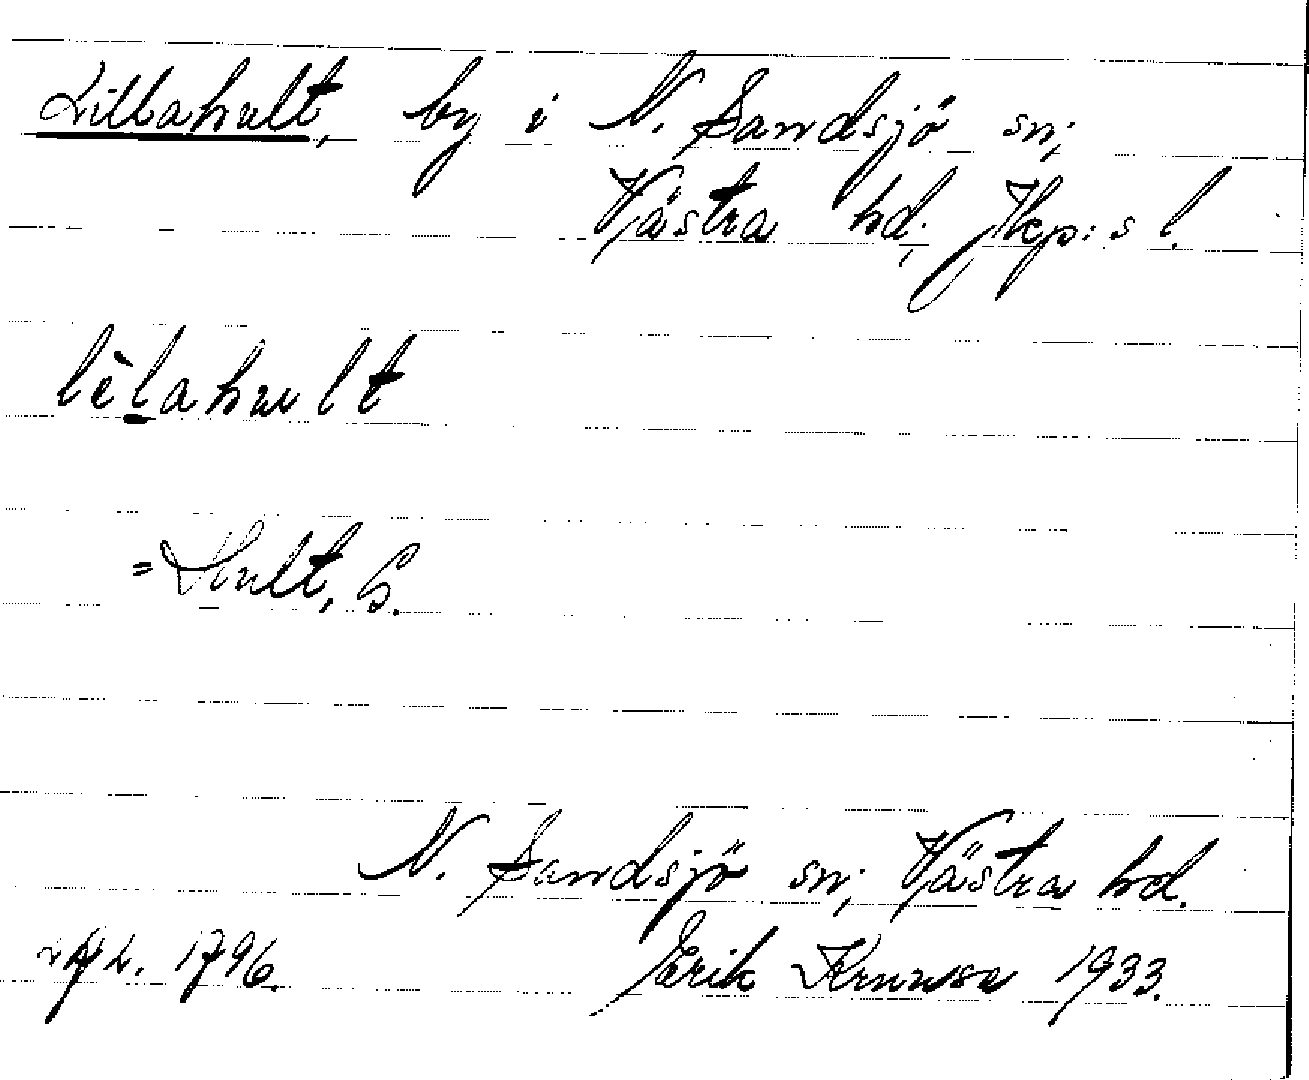 Lillahult, by i N. Sandsjö sn;
Västra hd; Jkp:s l.
lèlahult
= Hult, L.
N. Sandsjö sn; Västra hd.
1796. Erik 1933.